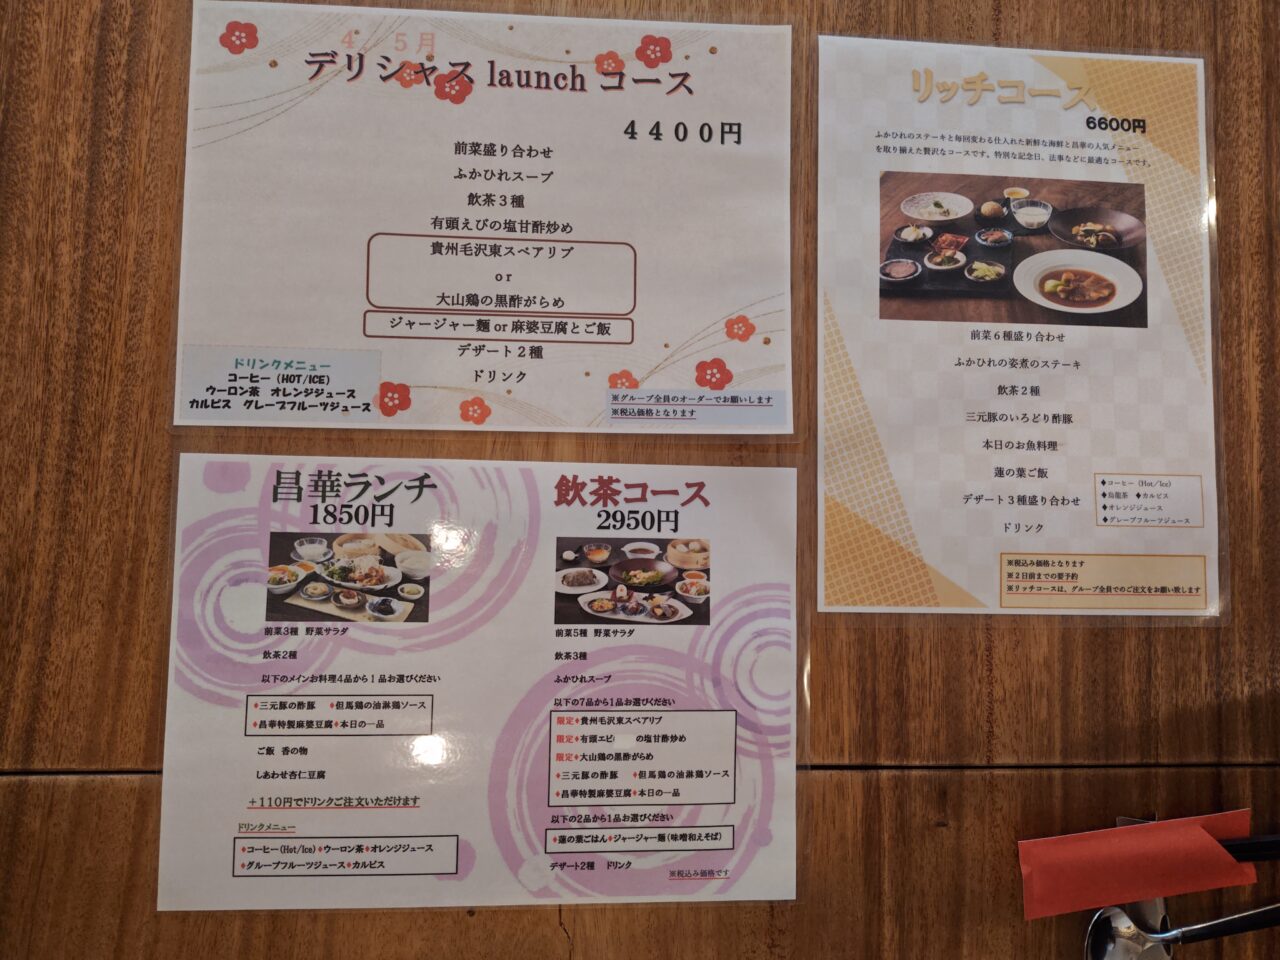 4、5月
デリシャス launch コース
４４００円
前菜盛り合わせ
ふかひれスープ
飲茶３種
有頭えびの塩甘酢炒め
貴州毛沢東スペアリブ
or
大山鶏の黒酢がらめ
ジャージャー麺 or 麻婆豆腐とご飯
デザート２種
ドリンク
ドリンクメニュー
コーヒー（HOT/ICE）
ウーロン茶　オレンジジュース
カルピス　グレープフルーツジュース
※グループ全員のオーダーでお願いします
※税込価格となります
リッチコース
6600円
ふかひれのステーキと毎回変わる仕入れた新鮮な海鮮と昌華の人気メニュー
を取り揃えた贅沢なコースです。特別な記念日、法事などに最適なコースです。
前菜６種盛り合わせ
ふかひれの姿煮のステーキ
飲茶２種
三元豚のいろどり酢豚
本日のお魚料理
蓮の葉ご飯
デザート３種盛り合わせ
ドリンク
♦コーヒー（Hot／Ice）
♦烏龍茶　♦カルピス
♦オレンジジュース
♦グレープフルーツジュース
※税込み価格となります
※２日前までの要予約
※リッチコースは、グループ全員でのご注文をお願い致します
昌華ランチ
1850円
前菜3種 野菜サラダ
飲茶2種
以下のメインお料理4品から１品お選びください
♦三元豚の酢豚　♦但馬鶏の油淋鶏ソース
♦昌華特製麻婆豆腐♦本日の一品
ご飯 香の物
しあわせ杏仁豆腐
＋110円でドリンクご注文いただけます
ドリンクメニュー
♦コーヒー（Hot/Ice）♦ウーロン茶♦オレンジジュース
♦グループフルーツジュース♦カルピス
飲茶コース
2950円
前菜5種 野菜サラダ
飲茶3種
ふかひれスープ
以下の7品から1品お選びください
限定♦貴州毛沢東スペアリブ
限定♦有頭エビ　の塩甘酢炒め
限定♦大山鶏の黒酢がらめ
♦三元豚の酢豚　♦但馬鶏の油淋鶏ソース
♦昌華特製麻婆豆腐♦本日の一品
以下の2品から1品お選びください
♦蓮の葉ごはん♦ジャージャー麺（味噌和えそば）
デザート2種　ドリンク
※税込み価格です